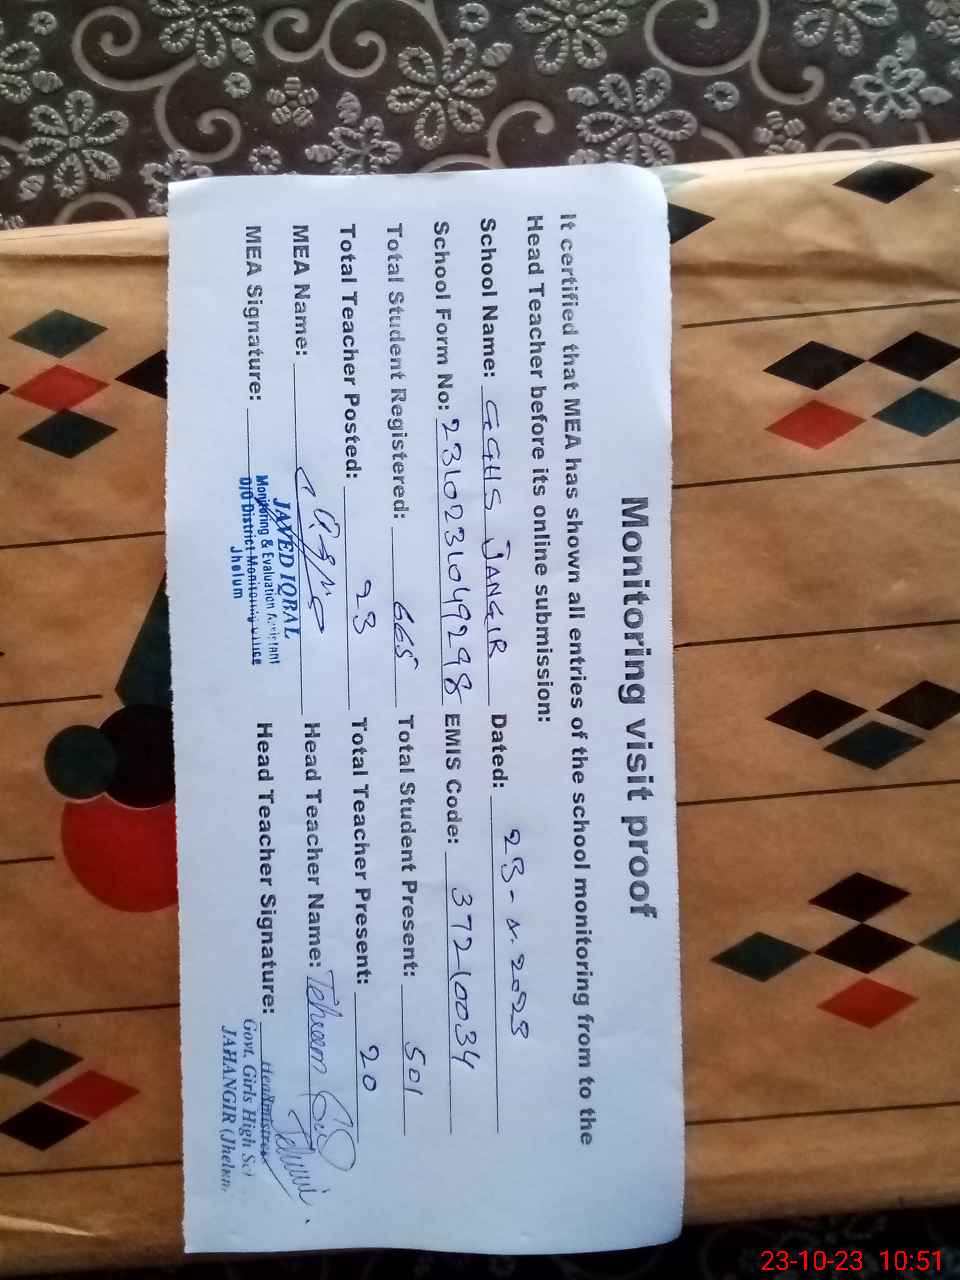 Monitoring visit proof
It certified that MEA has shown all entries of the school monitoring from to the
Head Teacher before its online submission:
School Name: GGHS JANGIR Dated: 23-
School Form No: 2310231049298 EMIS Code: 37210034
Total Student Registered: 665 Total Student Present: 501
Total Teacher Posted: 23 Total Teacher Present: 20
MEA Name: Head Teacher Name:
MEA Signature: Head Teacher Signature:
JAVED IQBAL
Monitoring & Evaluation Assistant
D/O District Monitoring Office
Jhelum
Headmistress
Govt. Girls High
JAHANGIR (Jhelum)
23-10-23 10:51